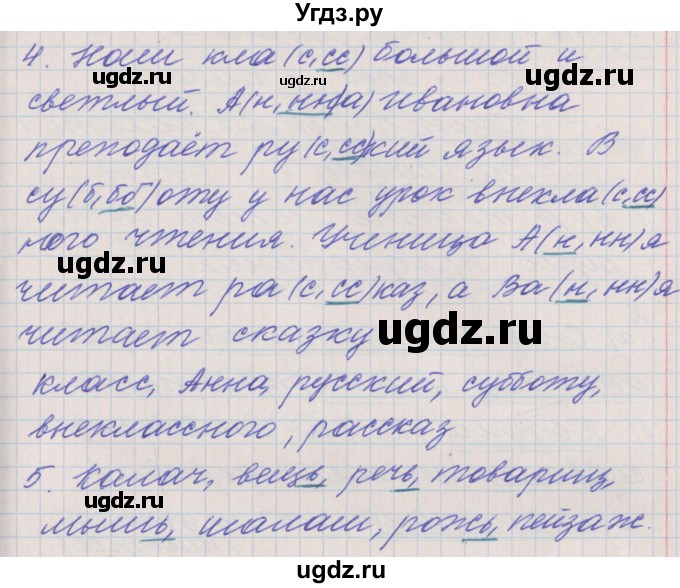 Угдз.ру
4. Наш кла(с,сс) большой и
светлый. А(н,нн)а) Ивановна
преподаёт ру(с,сс)кий язык. В
су(б,бб)оту у нас урок внекла(с,сс)
ного чтения. Ученица А(н,нн)я
читает ра(с,сс)каз, а Ва(н,нн)я
читает сказку
класс, Анна, русский, субботу,
внеклассного, рассказ
5. Калач, вещь, речь, товарищ,
мышь, шалаш, рожь, пейзаж.
ugdz.ru
ugdz.ru
ugdz.ru
ugdz.ru
ugdz.ru
ugdz.ru
ugdz.ru
ugdz.ru
ugdz.ru
ugdz.ru